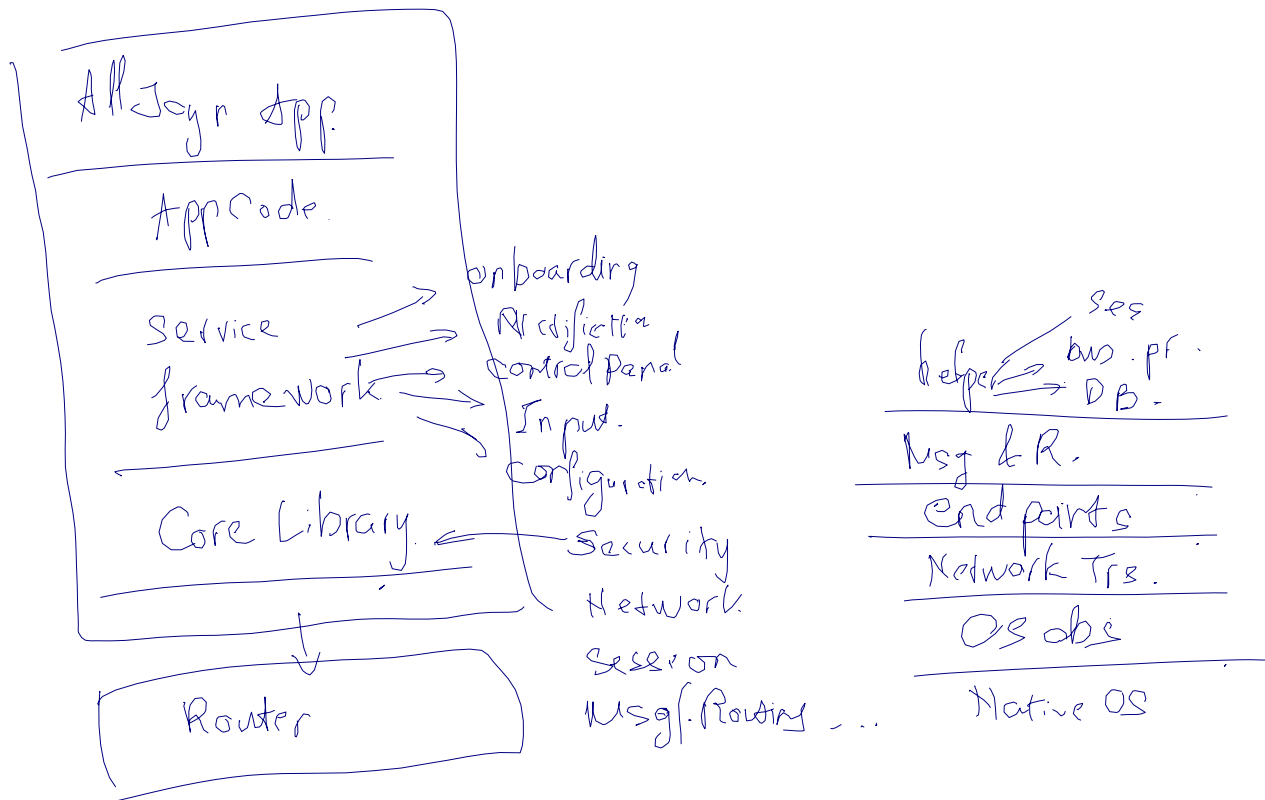 AllJoyn App.
App Code.
Service
framework
onboarding
Notification
Control Panal
Input.
Configuration.
Core Library.
Security
Network.
Session
Msg/.Routing ...
Router
helper
Ses
bus . pr .
DB.
Msg & R.
end points
Network Trs.
OS abs
Native OS